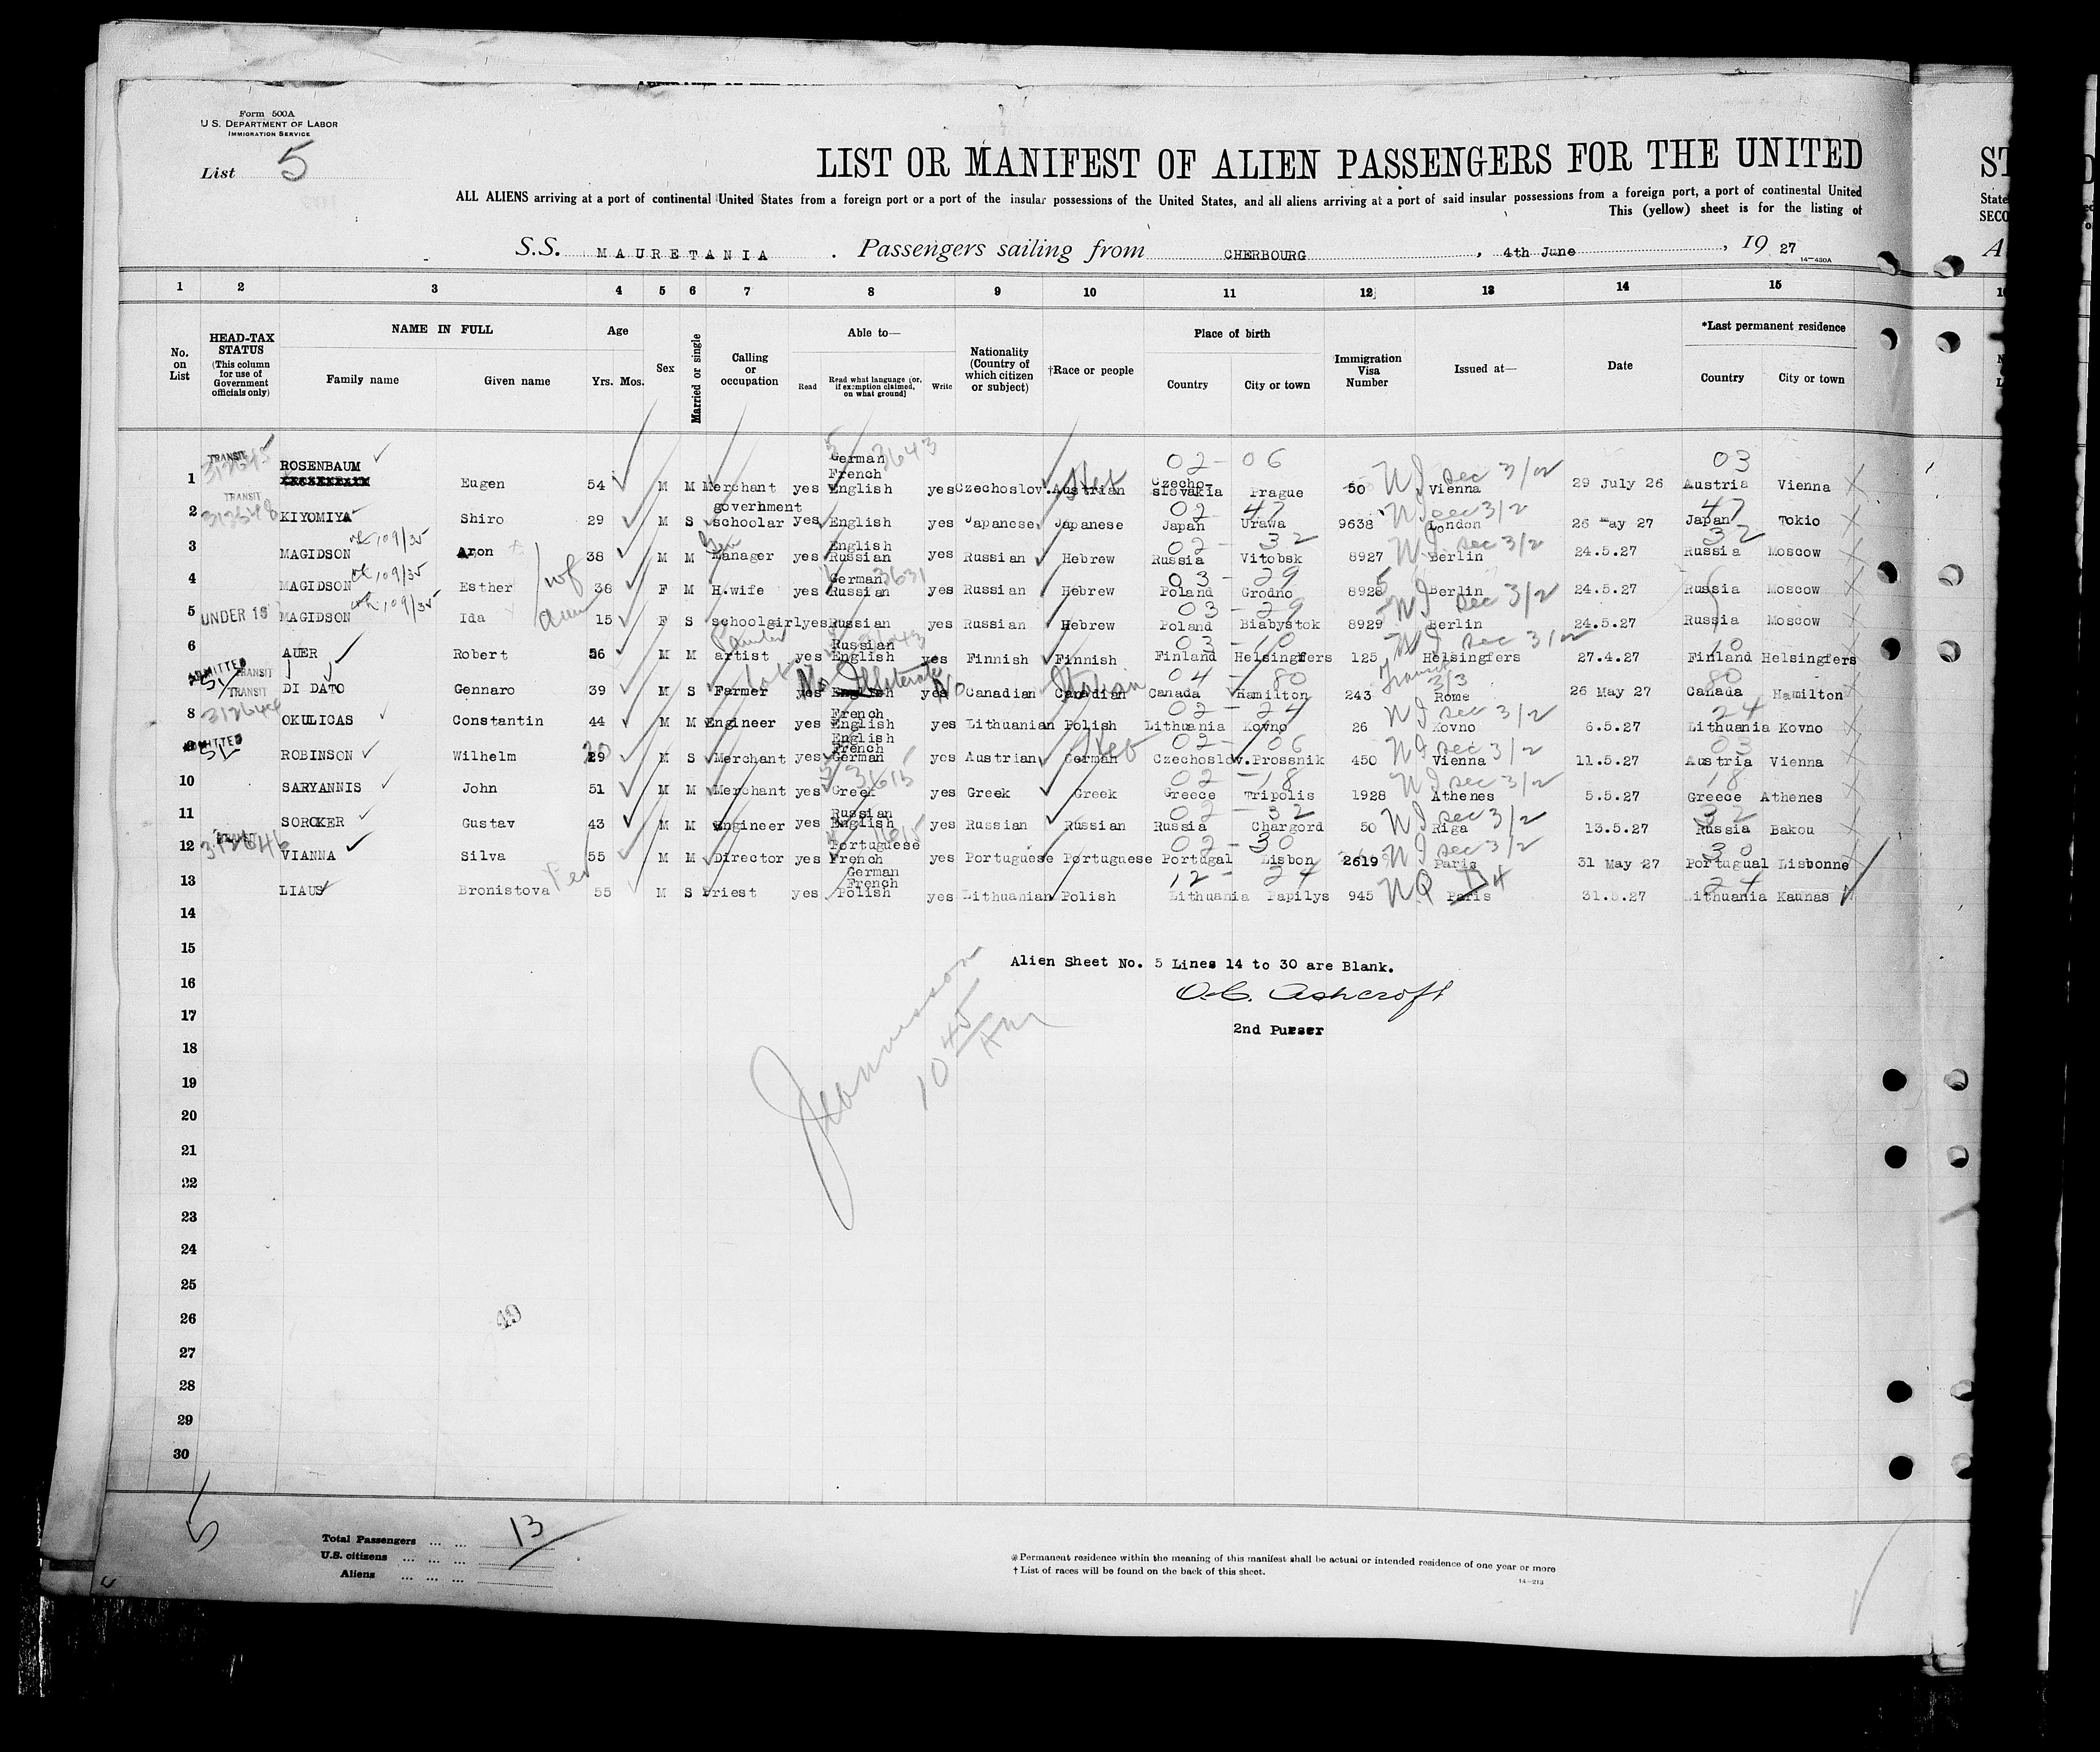 Form 500A
U.S. DEPARTMENT OF LABOR
IMMIGRATION SERVICE
List 5
LIST OR MANIFEST OF ALIEN PASSENGERS FOR THE UNITED
ALL ALIENS arriving at a port of continental United States from a foreign port or a port of the insular possessions of the United States, and all aliens arriving at a port of said insular possessions from a foreign port, a port of continental United
This (yellow) sheet is for the listing of
S.S. MAURETANIA . Passengers sailing from CHERBOURG , 4th June , 19 27
14—430A
1 2 3 4 5 6 7 8 9 10 11 12 13 14 15
No. on List
HEAD-TAX STATUS (This column for use of Government officials only)
NAME IN FULL
Family name Given name
Age
Yrs. Mos.
Sex
Married or single
Calling or occupation
Able to—
Read Read what language [or, if exemption claimed, on what ground] Write
Nationality (Country of which citizen or subject)
†Race or people
Place of birth
Country City or town
Immigration Visa Number
Issued at—
Date
*Last permanent residence
Country City or town
1 TRANSIT ROSENBAUM Eugen 54 M M Merchant yes German French English yes Czechoslov. Austrian Heb Czecho-slovakia Prague 50 Vienna 29 July 26 Austria Vienna
02-06 NI sec 3/2 03
2 TRANSIT KIYOMIYA Shiro 29 M S government schoolar yes English yes Japanese Japanese Japan Urawa 9638 London 26 May 27 Japan Tokio
02-47 NI sec 3/2 47
3 MAGIDSON Aron 38 M M Manager yes English Russian yes Russian Hebrew Russia Vitobsk 8927 Berlin 24.5.27 Russia Moscow
109/35 02-32 NI sec 3/2 32
4 MAGIDSON Esther wf 38 F M H.wife yes German Russian yes Russian Hebrew Poland Grodno 8928 Berlin 24.5.27 Russia Moscow
109/35 3631 03-29
5 UNDER 16 MAGIDSON Ida dau 15 F S schoolgirl yes Russian yes Russian Hebrew Poland Biabystok 8929 Berlin 24.5.27 Russia Moscow
109/35 03-29 NI sec 3/2
6 AUER Robert 26 M M artist yes Russian English yes Finnish Finnish Finland Helsingfers 125 Helsingfers 27.4.27 Finland Helsingfers
Painter 03-10 NI sec 3/2 10
ADMITTED TRANSIT DI DATO Gennaro 39 M S Farmer yes English yes Canadian Canadian Canada Hamilton 243 Rome 26 May 27 Canada Hamilton
No Illiterate No Italian 04-80 Transit 3/3 80
8 TRANSIT OKULICAS Constantin 44 M M Engineer yes French English yes Lithuanian Polish Lithuania Kovno 26 Kovno 6.5.27 Lithuania Kovno
02-24 NI sec 3/2 24
ADMITTED ROBINSON Wilhelm 29 M S Merchant yes English French German yes Austrian German Heb Czechoslov. Prossnik 450 Vienna 11.5.27 Austria Vienna
02-06 NI sec 3/2 03
10 SARYANNIS John 51 M M Merchant yes Greek yes Greek Greek Greece Tripolis 1928 Athenes 5.5.27 Greece Athenes
02-18 NI sec 3/2 18
11 SORCKER Gustav 43 M M Engineer yes Russian English yes Russian Russian Russia Chargord 50 Riga 13.5.27 Russia Bakou
02-32 NI sec 3/2 32
12 VIANNA Silva 55 M M Director yes Portuguese French yes Portuguese Portuguese Portugal Lisbon 2619 Paris 31 May 27 Portugual Lisbonne
02-30 NI sec 3/2 30
13 LIAUS Bronistova 55 M S Priest yes German French Polish yes Lithuanian Polish Lithuania Papilys 945 Paris 31.5.27 Lithuania Kaunas
12-24 NQ 24
14
15
Alien Sheet No. 5 Lines 14 to 30 are Blank.
16
O.C. Ashcroft
17
2nd Purser
10 45 AM
18
19
20
21
22
23
24
25
26
49
27
28
29
30
Total Passengers ... ... 13
U.S. citizens ... ... ...
Aliens ... ... ...
*Permanent residence within the meaning of this manifest shall be actual or intended residence of one year or more
†List of races will be found on the back of this sheet.
14—213